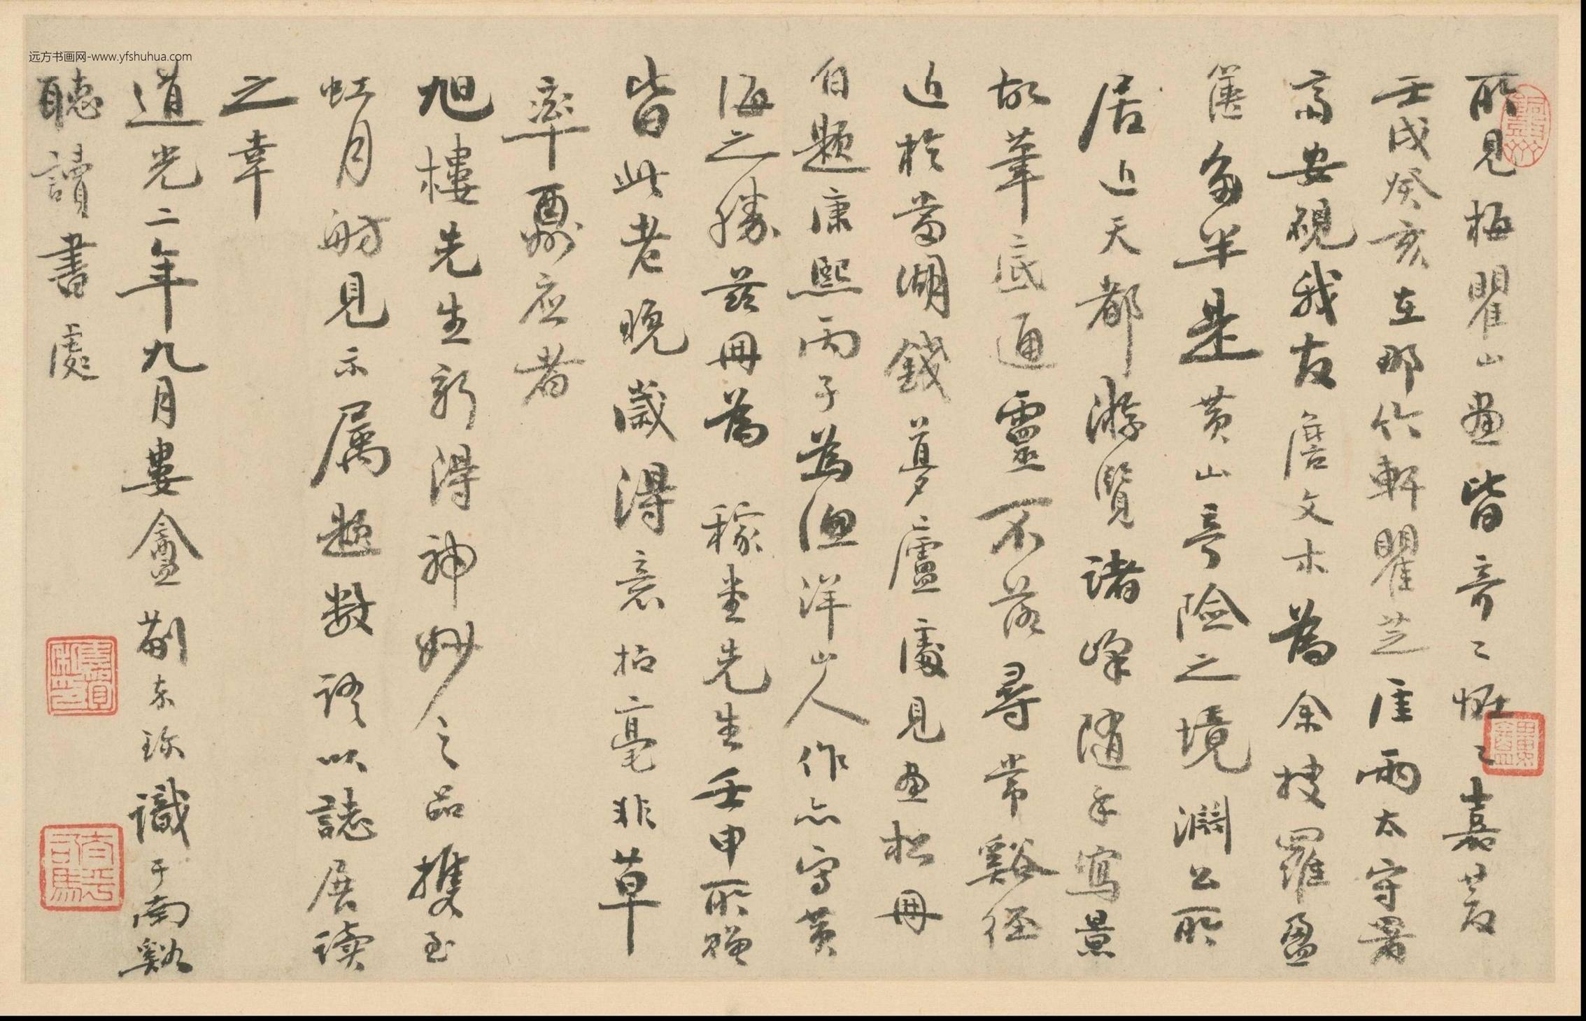 远方书画网-www.yfshuhua.com
所見梅瞿山畫皆奇之怪之嘉慶
壬戌癸亥在那竹軒瞿芝厓兩太守署
高安硯我友詹文木為余搜羅盈
篋多半是黃山奇險之境淵公所
居近天都游覽諸峰隨手寫景
故筆底通靈不落尋常谿徑
近於當湖錢夢廬處見畫松冊
自題康熙丙子為漁洋山人作亦寫黃
海之勝茲冊為 稼堂先生壬申所贈
皆此老晚歲得意拈毫非草
率酬應者
旭樓先生新得神妙之品攜至
虹月舫見示屬題數語以誌展讀
之幸
道光二年九月婁盦蔣東珍識于南谿
聽讀書處